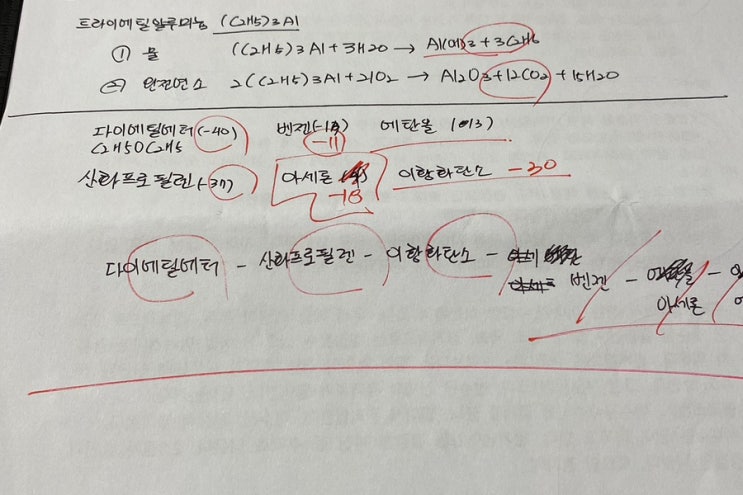 트라이에틸알루미늄 (C2H5)3Al
① 물 (C2H5)3Al + 3H2O → Al(OH)3 + 3C2H6
② 완전연소 2(C2H5)3Al + 21O2 → Al2O3 + 12CO2 + 15H2O
다이에틸에터 (-40) 벤젠 -11 에탄올 (13)
C2H5OC2H5
산화프로필렌 (-37) 아세톤 -18 이황화탄소 -30
다이에틸에터 - 산화프로필렌 - 이황화탄소 -
벤젠 - -
아세톤